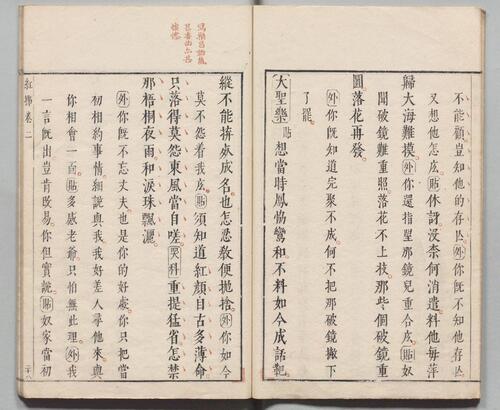 不能顧豈知他的存亾外你既不知他存亾
又想他怎庅貼休訝沒柰何消遣料他每萍
歸大海難摸外你還指望那鏡兒重合庅貼奴
聞破鏡難重照落花不上枝那些個破鏡重
圓落花再發
外你既知道完聚不成何不把那破鏡撇下
了罷
大聖樂貼想當時鳳協鸞和不料如今成話靶
縱不能拚處成名也怎忍教便拋捨外你如今
莫不怨着我庅貼須知道紅顏自古多薄命
只落得莫怨東風當自嗟哭科重提猛省怎禁
那梧桐夜雨和淚珠飄灑
外你既不忘丈夫也是你的好處你只把當
初相約事情細說與我我好差人尋他來與
你相會一面貼多感老爺只怕無此理外我
一言既出豈肯改易你但實說貼奴家當初
紅拂卷二